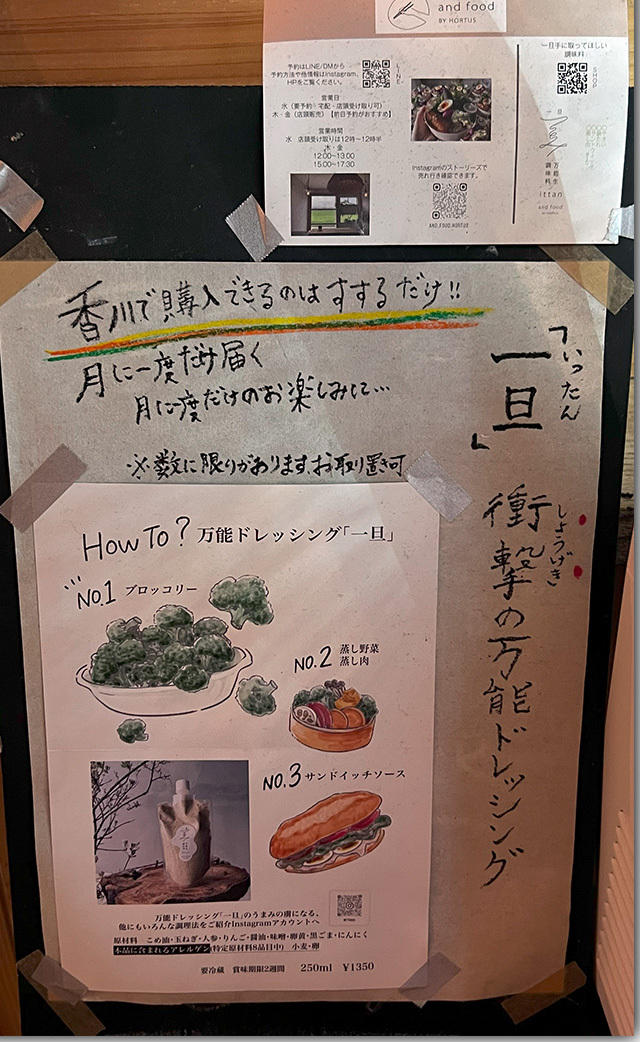 and food
BY HORTUS
予約はLINE/DMから
予約方法や他情報はInstagram、
HPをご覧ください。
LINE
営業日
水（要予約・宅配・店頭受け取り可）
木・金（店頭販売）【前日予約がおすすめ】
営業時間
水　店頭受け取りは12時〜12時半
木・金
12:00~13:00
15:00~17:30
Instagramのストーリーズで
売れ行き確認できます。
AND_FOOD.HORTUS
一旦手に取ってほしい
調味料
SHOP
一旦
万能生
調味料
ittan
and food
香川で購入できるのはすするだけ!!
月に一度だけ届く
月に度だけのお楽しみに…
※数に限りがあります、お取り置き可
いったん
「一旦」
しょうげき
衝撃の万能ドレッシング
HOW TO? 万能ドレッシング「一旦」
NO.1 ブロッコリー
NO.2 蒸し野菜
蒸し肉
NO.3 サンドイッチソース
万能ドレッシング「一旦」のうまみの虜になる、
他にもいろんな調理法をご紹介Instagramアカウントへ
原材料　こめ油・玉ねぎ・人参・りんご・醤油・味噌・卵黄・黒ごま・にんにく
本品に含まれるアレルゲン(特定原材料8品目中)　小麦・卵
要冷蔵　賞味期限2週間　250ml　¥1350